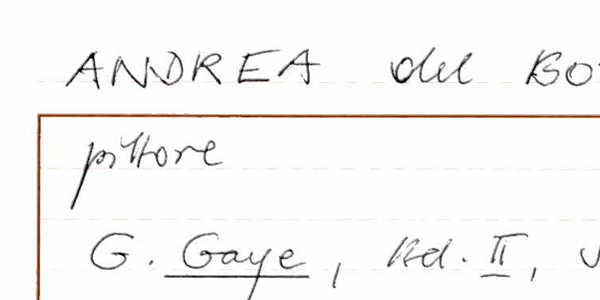 ANDREA del
pittore
G. Gaye, Bd. II,